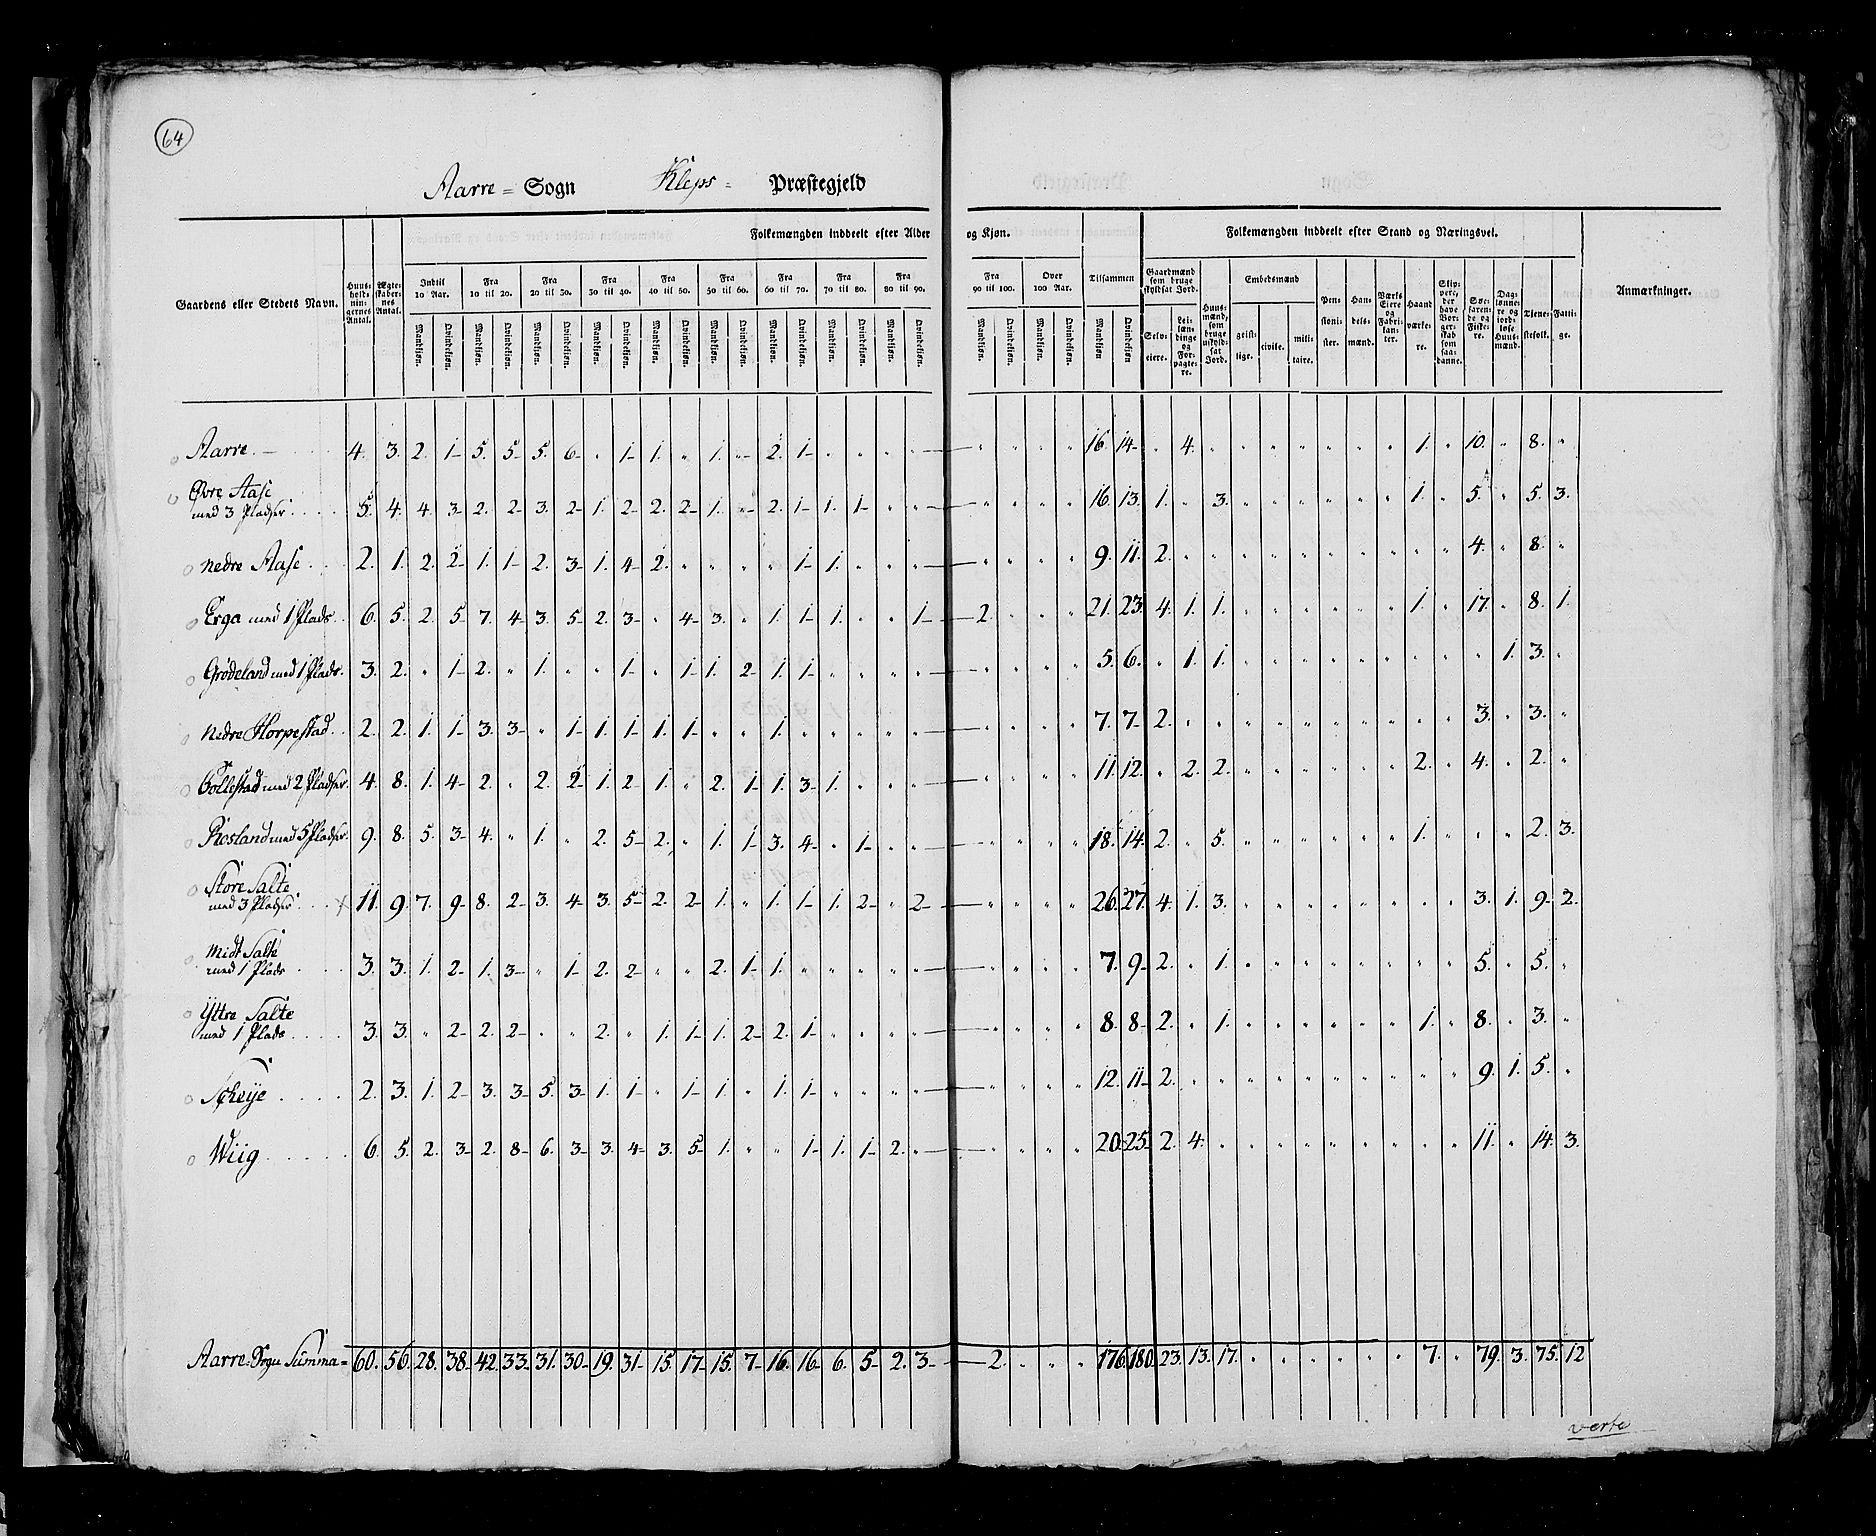 64
Aarre = Sogn Kleps = Præstegjeld
Folkemængden inddeelt efter Alder og Kjøn. Folkemængden inddeelt efter Stand og Næringsvei.
Gaardens eller Stedets Navn. Huus-holdningernes Antal. Ægteskabernes Antal. Indtil 10 Aar. Fra 10 til 20. Fra 20 til 30. Fra 30 til 40. Fra 40 til 50. Fra 50 til 60. Fra 60 til 70. Fra 70 til 80. Fra 80 til 90. Fra 90 til 100. Over 100 Aar. Tilsammen Gaardmænd som bruge skyldsat Jord. Huusmænd, som bruge uskyldsat Jord. Embedsmænd Pensionister. Handelsmænd. Værks Eiere og Fabrikanter. Haandværkere. Søefarende og Fiskere. Tjenestefolk. Fattige. Anmærkninger.
Mandkjøn. Qvindekjøn. Mandkjøn. Qvindekjøn. Mandkjøn. Qvindekjøn. Mandkjøn. Qvindekjøn. Mandkjøn. Qvindekjøn. Mandkjøn. Qvindekjøn. Mandkjøn. Qvindekjøn. Mandkjøn. Qvindekjøn. Mandkjøn. Qvindekjøn. Mandkjøn. Qvindekjøn. Mandkjøn. Qvindekjøn. Mandkjøn Qvindekjøn Selveiere. Leilændinge og Forpagtere. geistlige. civile. militaire.
Aarre. 4. 3. 2. 1- 5. 5- 5. 6- " 1- 1. " 1. "- 2. 1- " " " " " " " " 16. 14- " 4. " " " " " " " " 1. " 10. " 8. "
Øvre Aase
med 3 Pladser 5. 4. 4. 3- 2. 2- 3. 2- 1. 2- 2. 2- 1. "- 2. 1- 1. 1- " " " " " " 16. 13. 1. " 3. " " " " " " " 1. " 5. " 5. 3.
nedre Aase 2. 1. 2. 2- 1. 1- 2. 3- 1. 4- 2. " " " " 1- 1. " " " " " " " 9. 11. 2. " " " " " " " " " " " 4. " 8. "
Erga med 1 Plads 6. 5. 2. 5- 7. 4- 3. 5- 2. 3- " 4- 3. " 1. 1- 1. " " 1- 2. " " " 21. 23. 4. 1. 1. " " " " " " " 1. " 17. " 8. 1.
Grødeland med 1 Plads. 3. 2. " 1- 2. " 1. " " 1- " 1- 1. 2- 1. 1- " " " " " " " " 5. 6. " 1. 1. " " " " " " " " " " 1. 3. "
nedre Horpestad 2. 2. 1. 1- 3. 3- " 1- 1. 1- 1. 1- " " 1. " " " " " " " " " 7. 7- 2. " " " " " " " " " " " 3. " 3. "
Bollestad med 2 Pladser 4. 8. 1. 4- 2. " 2. 2- 1. 2- 1. " 2. 1- 1. 3- 1. " " " " " " " 11. 12. " 2. 2. " " " " " " " 2. " 4. " 2. "
Rosland med 5 Pladser 9. 8. 5. 3- 4. " 1. " 2. 5- 2. " 1. 1- 3. 4- " 1- " " " " " " 18. 14. 2. " 5. " " " " " " " 1. " " " 2. 3.
Store Salte
med 3 Pladser x 11. 9. 7. 9- 8. 2- 3. 4- 3. 5- 2. 2- 1. " 1. 1- 1. 2- " 2- " " " " 26. 27. 4. 1. 3. " " " " " " " " " 3. 1. 9- 2.
Midt Salte
med 1 Plads 3. 3. 1. 2- 1. 3- " 1- 2. 2- " " 2. 1- 1. " " " " " " " " " 7. 9- 2. " 1. " " " " " " " " " 5. " 5. "
Yttre Salte
med 1 Plads 3. 3. " 2- 2. 2- " " 2. " 1. 1- 1. 2- 2. 1- " " " " " " " " 8. 8- 2. " 1. " " " " " " " 1. " 8. " 3. "
Scheije 2. 3. 1. 2- 3. 3- 5. 3- 1. 1- " 1- 1. " 1. 1- " " " " " " " " 12. 11- 2. " " " " " " " " " " " 9. 1. 5. "
Wiig 6. 5. 2. 3- 2. 8- 6. 3- 3. 4- 3. 5- 1. " " 1- 1. 1- 2. " " " " " 20. 25. 2. 4. " " " " " " " " " " 11. " 14. 3.
Aarre-Sogn Summa = 60. 56. 28. 38- 42. 33- 31. 30- 19. 31- 15. 17- 15. 7- 16. 16- 6. 5- 2. 3- 2. " " " 176. 180. 23. 13. 17. " " " " " " " 7. " 79. 3. 75. 12
verte